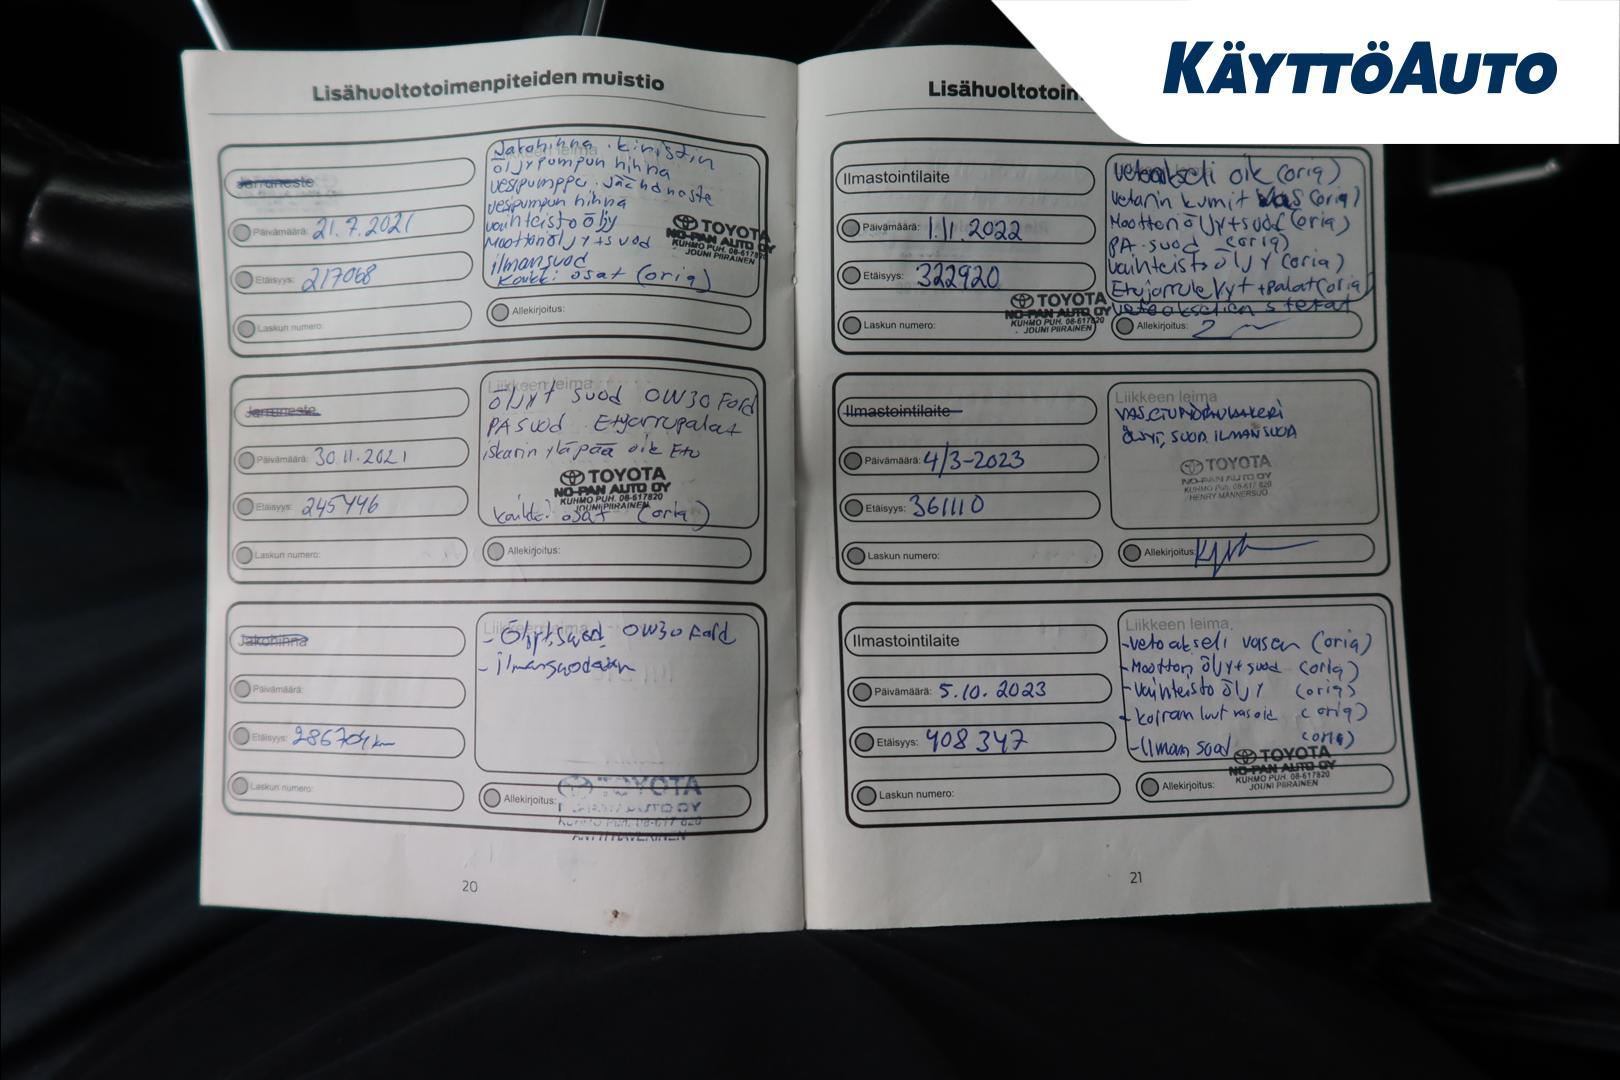 KÄYTTÖAUTO
Lisähuoltotoimenpiteiden muistio
Jarruneste
Päivämäärä: 21.7.2021
Etäisyys: 217068
Laskun numero:
Jakohihna. kiristin
öljypumpun hihna
vesipumppu. Jäähdneste
vesipumpun hihna
vaihteisto öljy
Moottoriöljy+suod
ilmansuod
kaikki osat (orig)
TOYOTA
NO-PAN AUTO OY
KUHMO PUH. 08-617820
JOUNI PIIRAINEN
Allekirjoitus:
Jarruneste
Päivämäärä: 30.11.2021
Etäisyys: 245446
Laskun numero:
Liikkeen leima
öljyt suod 0W30 Ford
PA suod Etujarrupalat
iskarin yläpää oik Etu
TOYOTA
NO-PAN AUTO OY
KUHMO PUH. 08-617820
JOUNI PIIRAINEN
kaikki osat (orig)
Allekirjoitus:
Jakohihna
Päivämäärä:
Etäisyys: 286704 km
Laskun numero:
Liikkeen leima
- Öljyt, suod 0W30 Ford
- ilmansuodatin
TOYOTA
AUTO OY
KUHMO PUH. 08-617 820
Allekirjoitus:
20
Ilmastointilaite
Päivämäärä: 1.11.2022
Etäisyys: 322920
Laskun numero:
vetoakseli oik (orig)
vetarin kumit vas (orig)
Moottoriöljy+suod (orig)
PA. suod (orig)
vaihteisto öljy (orig)
Etujarrulevyt + palat (orig)
TOYOTA
NO-PAN AUTO OY
KUHMO PUH. 08-617820
JOUNI PIIRAINEN
Allekirjoitus:
Ilmastointilaite
Päivämäärä: 4/3-2023
Etäisyys: 361110
Laskun numero:
Liikkeen leima
ÖLJYT, SUOD. ILMANSUOD
TOYOTA
NO-PAN AUTO OY
KUHMO PUH. 08-617 820
HENRY MANNERSUO
Allekirjoitus:
Ilmastointilaite
Päivämäärä: 5.10.2023
Etäisyys: 408 347
Laskun numero:
Liikkeen leima
- vetoakseli vasen (orig)
- Moottori öljy+suod (orig)
- vaihteisto öljy (orig)
- koiran luut vas oik (orig)
- Ilman suod (orig)
TOYOTA
NO-PAN AUTO OY
KUHMO PUH. 08-617820
JOUNI PIIRAINEN
Allekirjoitus:
21